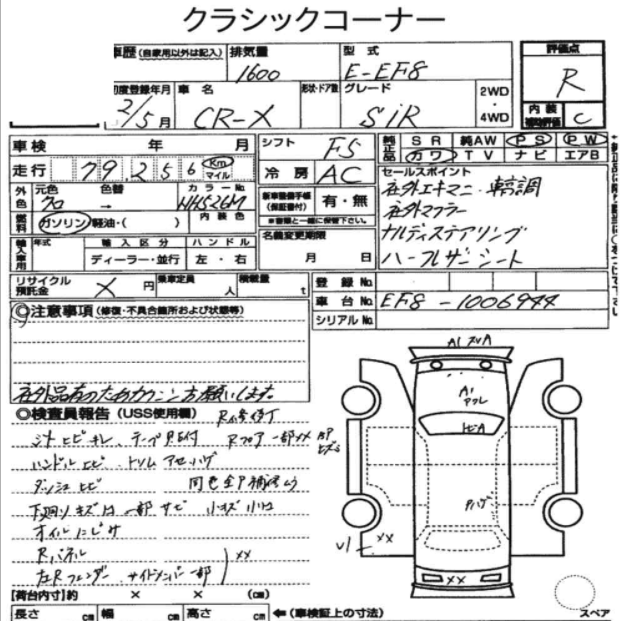 クラシックコーナー
車歴 (自家用以外は記入) 排気量 1600 型式 E-EF8 評価点 R
初度登録年月 2/5月 車名 CR-X 形状・ドア数 グレード SiR 2WD・4WD 内装補助評価 C
車検 年 月 シフト F5 純正品 SR 純AW PS PW
カワ TV ナビ エアB
走行 79,256 Km マイル 冷房 AC セールスポイント
社外エキマニ 車高調
外色 元色 クロ 色替 → カラーNo. NH526M 新車整備手帳 (保証書付) 有・無
※書類と一緒に保管下さい。
社外マフラー
燃料 ガソリン 軽油・( ) 内装色
ナルディステアリング
輸入車用 年式 輸入区分 ハンドル 名義変更期限
ディーラー・並行 左・右 月 日
ハーフレザーシート
リサイクル預託金 × 円 乗車定員 人 積載量 t 登録No.
車台No. EF8-1006944
シリアルNo.
◎注意事項 (修復・不具合箇所および状態等)
社外品有のためカクニンお願いします。
◎検査員報告 (USS使用欄) R
シートヒビキレ、テープ Rフロア一部××
ハンドルヒビ トリム
ダッシュヒビ 同色全P補修
下廻りキズ 一部サビ 小キズ小凹
オイルにじみ
Rパネル
左Rフェンダー、サイドメンバー一部 ××
A1
A1
ヒA
Pハゲ
××
U1
××
[荷台内寸] 約 × × (cm)
長さ cm 幅 cm 高さ cm ← (車検証上の寸法) スペア